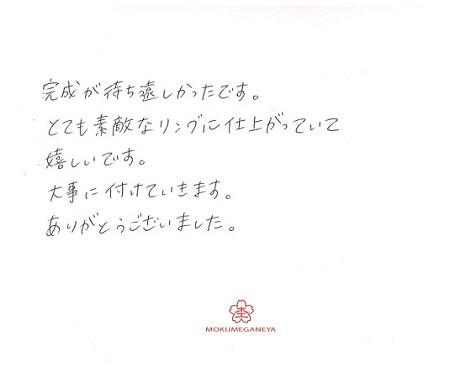 完成が待ち遠しかったです。
とても素敵なリングに仕上がっていて
嬉しいです。
大事に付けていきます。
ありがとうございました。
MOKUMEGANEYA